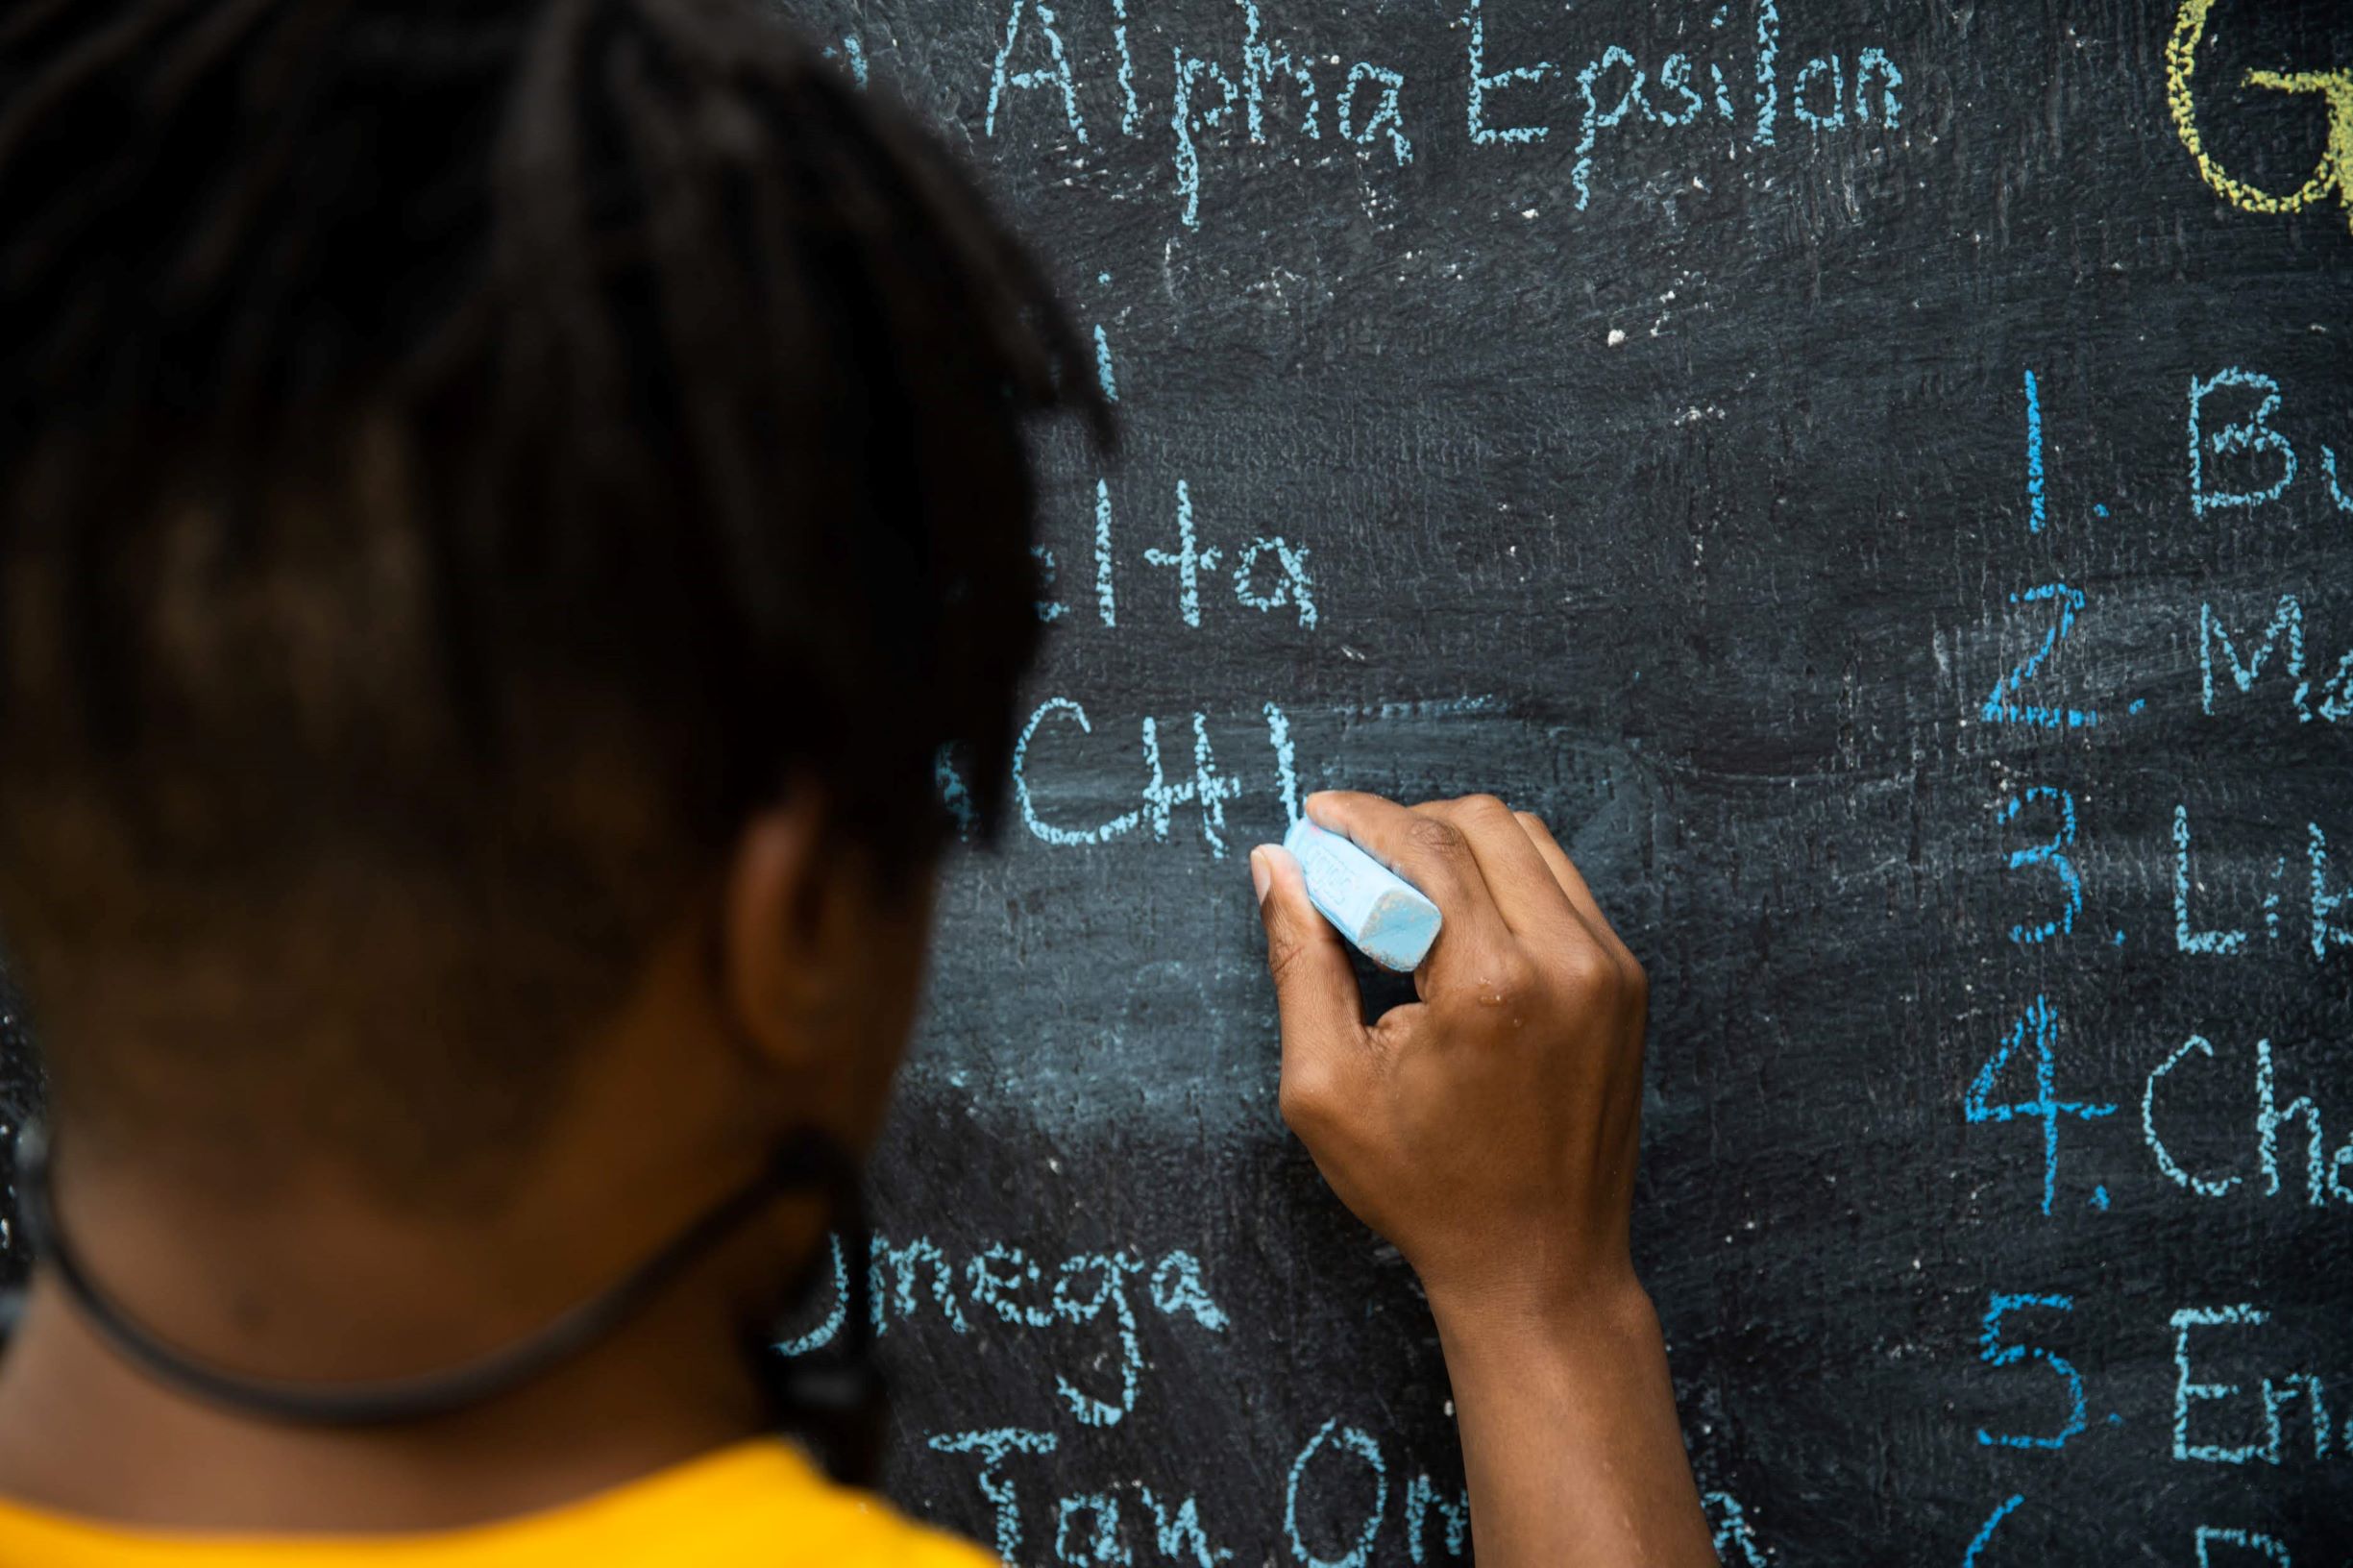 Alpha Epsilan
elta
CHI
Omega
Tan
G
1. Bu
2. Ma
3. Lik
4. Cha
5. En